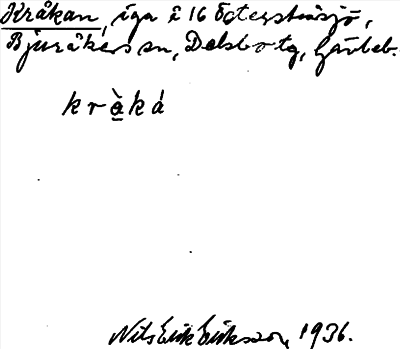 Kråkan, äga i 16 Österstusjö,
Bjuråkers sn, Delsbo tg, Gävleb.
kràká
Nils Erik Eriksson, 1936.